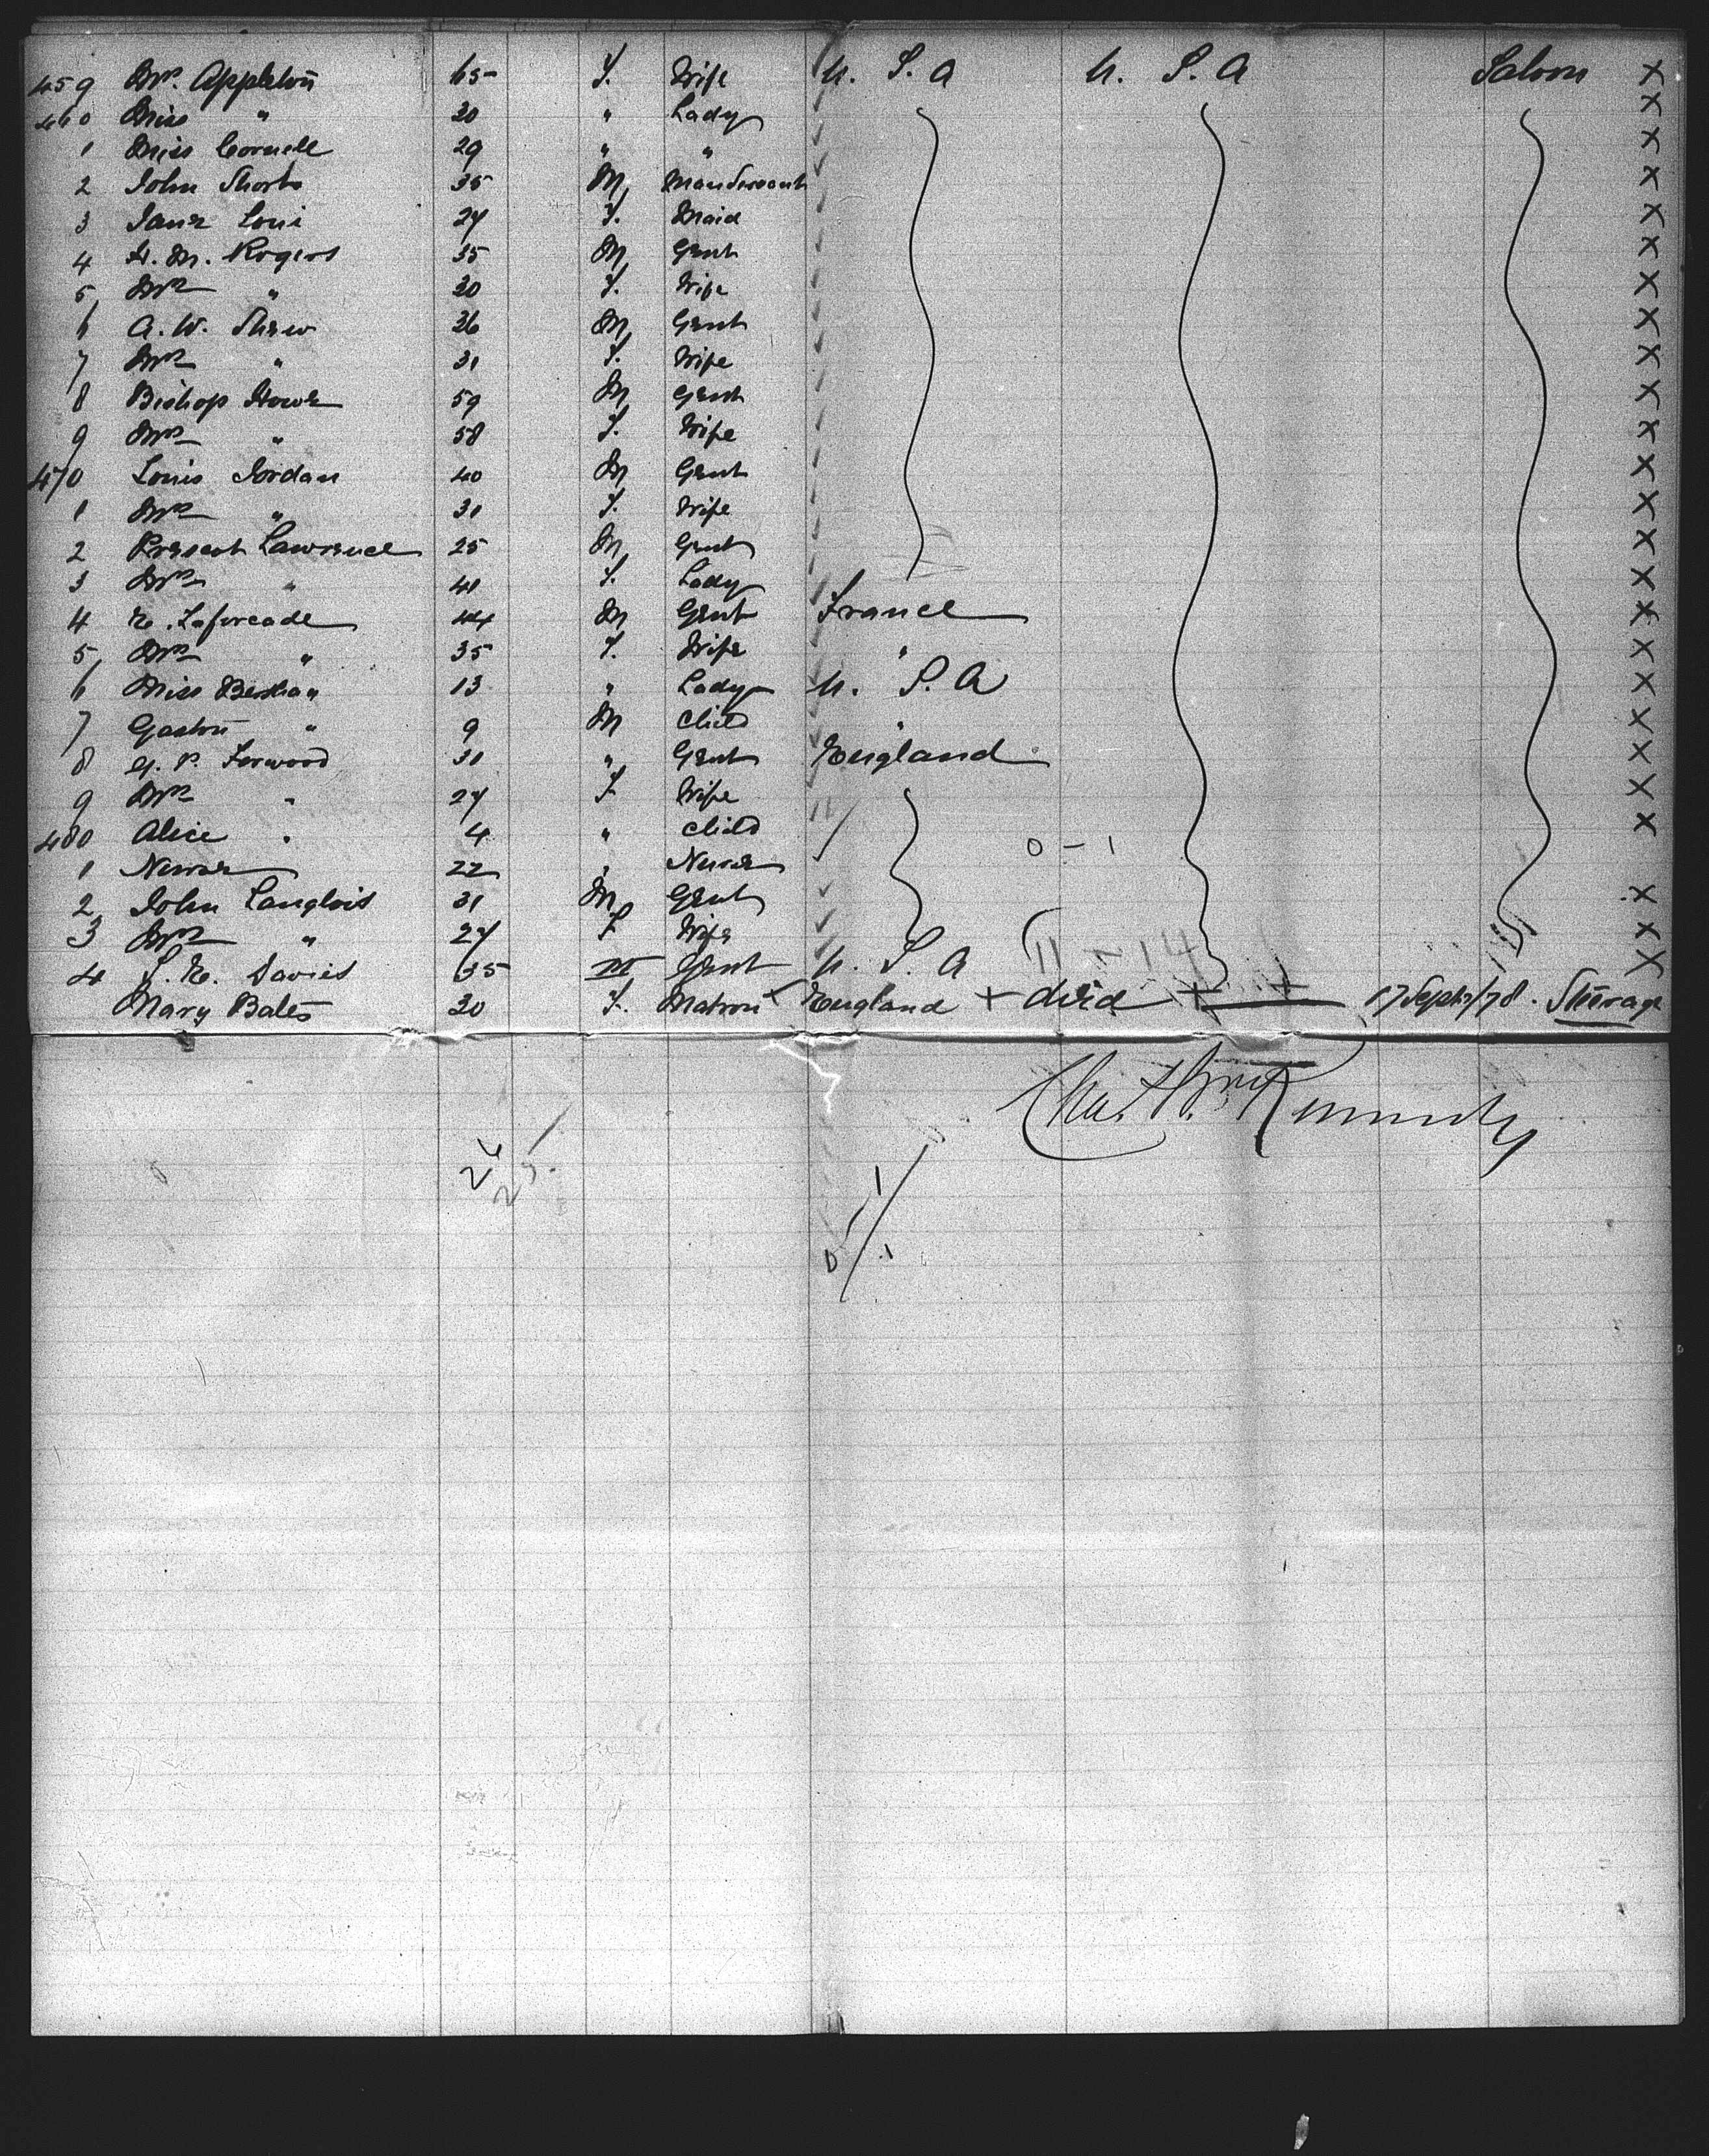 459 Mrs. Appleton 65 F. Wife U. S. A U. S. A Saloon X
460 Miss " 30 " Lady X
1 Miss Cornell 29 " " X
2 John Shorts 35 M Manservant X
3 Jane Loni 27 F. Maid X
4 H. M. Rogers 35 M Gent X
5 Mrs " 30 F. Wife X
6 A. W. Shaw 36 M Gent X
7 Mrs " 31 F. Wife X
8 Bishop Howe 59 M Gent X
9 Mrs " 58 F. Wife X
470 Louis Jordan 40 M Gent X
1 Mrs " 31 F. Wife X
2 Prescot Lawrence 25 M Gent X
3 Mrs " 41 F. Lady X
4 E. Laforcade 44 M Gent France X
5 Mrs " 35 F. Wife " X
6 Miss Bertha " 13 " Lady U. S. A X
7 Gaston " 9 M Child " X
8 G. P. Forwood 31 " Gent England X
9 Mrs " 27 F Wife X
480 Alice " 4 " Child X
1 Nurse 22 " Nurse
2 John Langlois 31 M Gent X
3 Mrs " 27 F Wife X
4 S. E. Davies 35 M Gent U. S. A 11 - 14 X
Mary Bates 20 F. Matron England + died + 17 Sept/78. Steerage
Kennedy